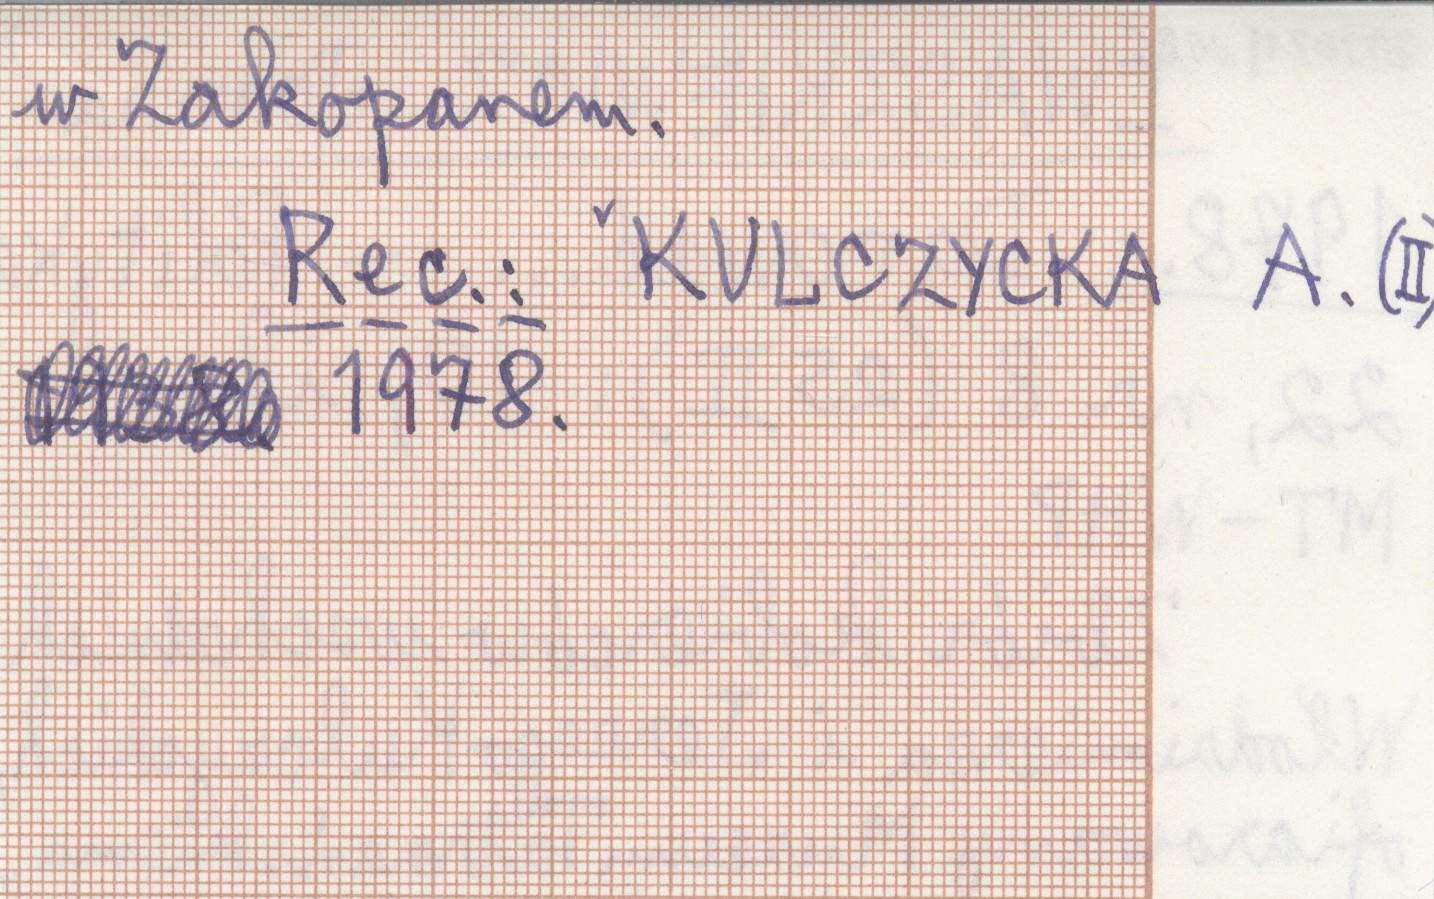 w Zakopanem.
Rec.: KULCZYCKA A. (II)
1978.